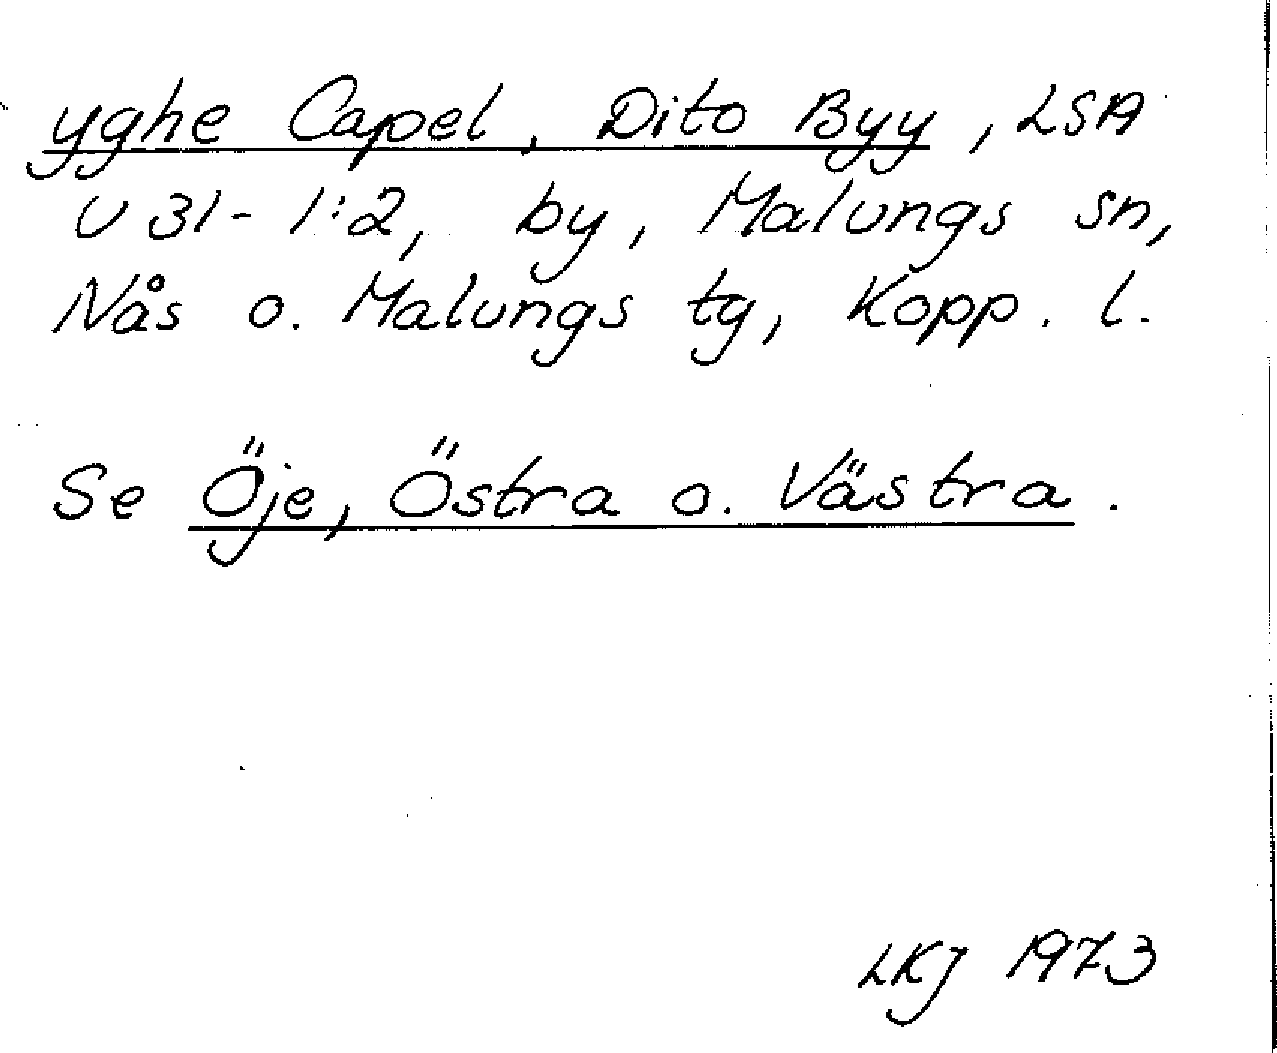 yghe Capel, Dito Byy, LSA
U 31-1:2, by, Malungs sn,
Nås o. Malungs tg, Kopp. l.
Se Öje, Östra o. Västra.
LKJ 1973